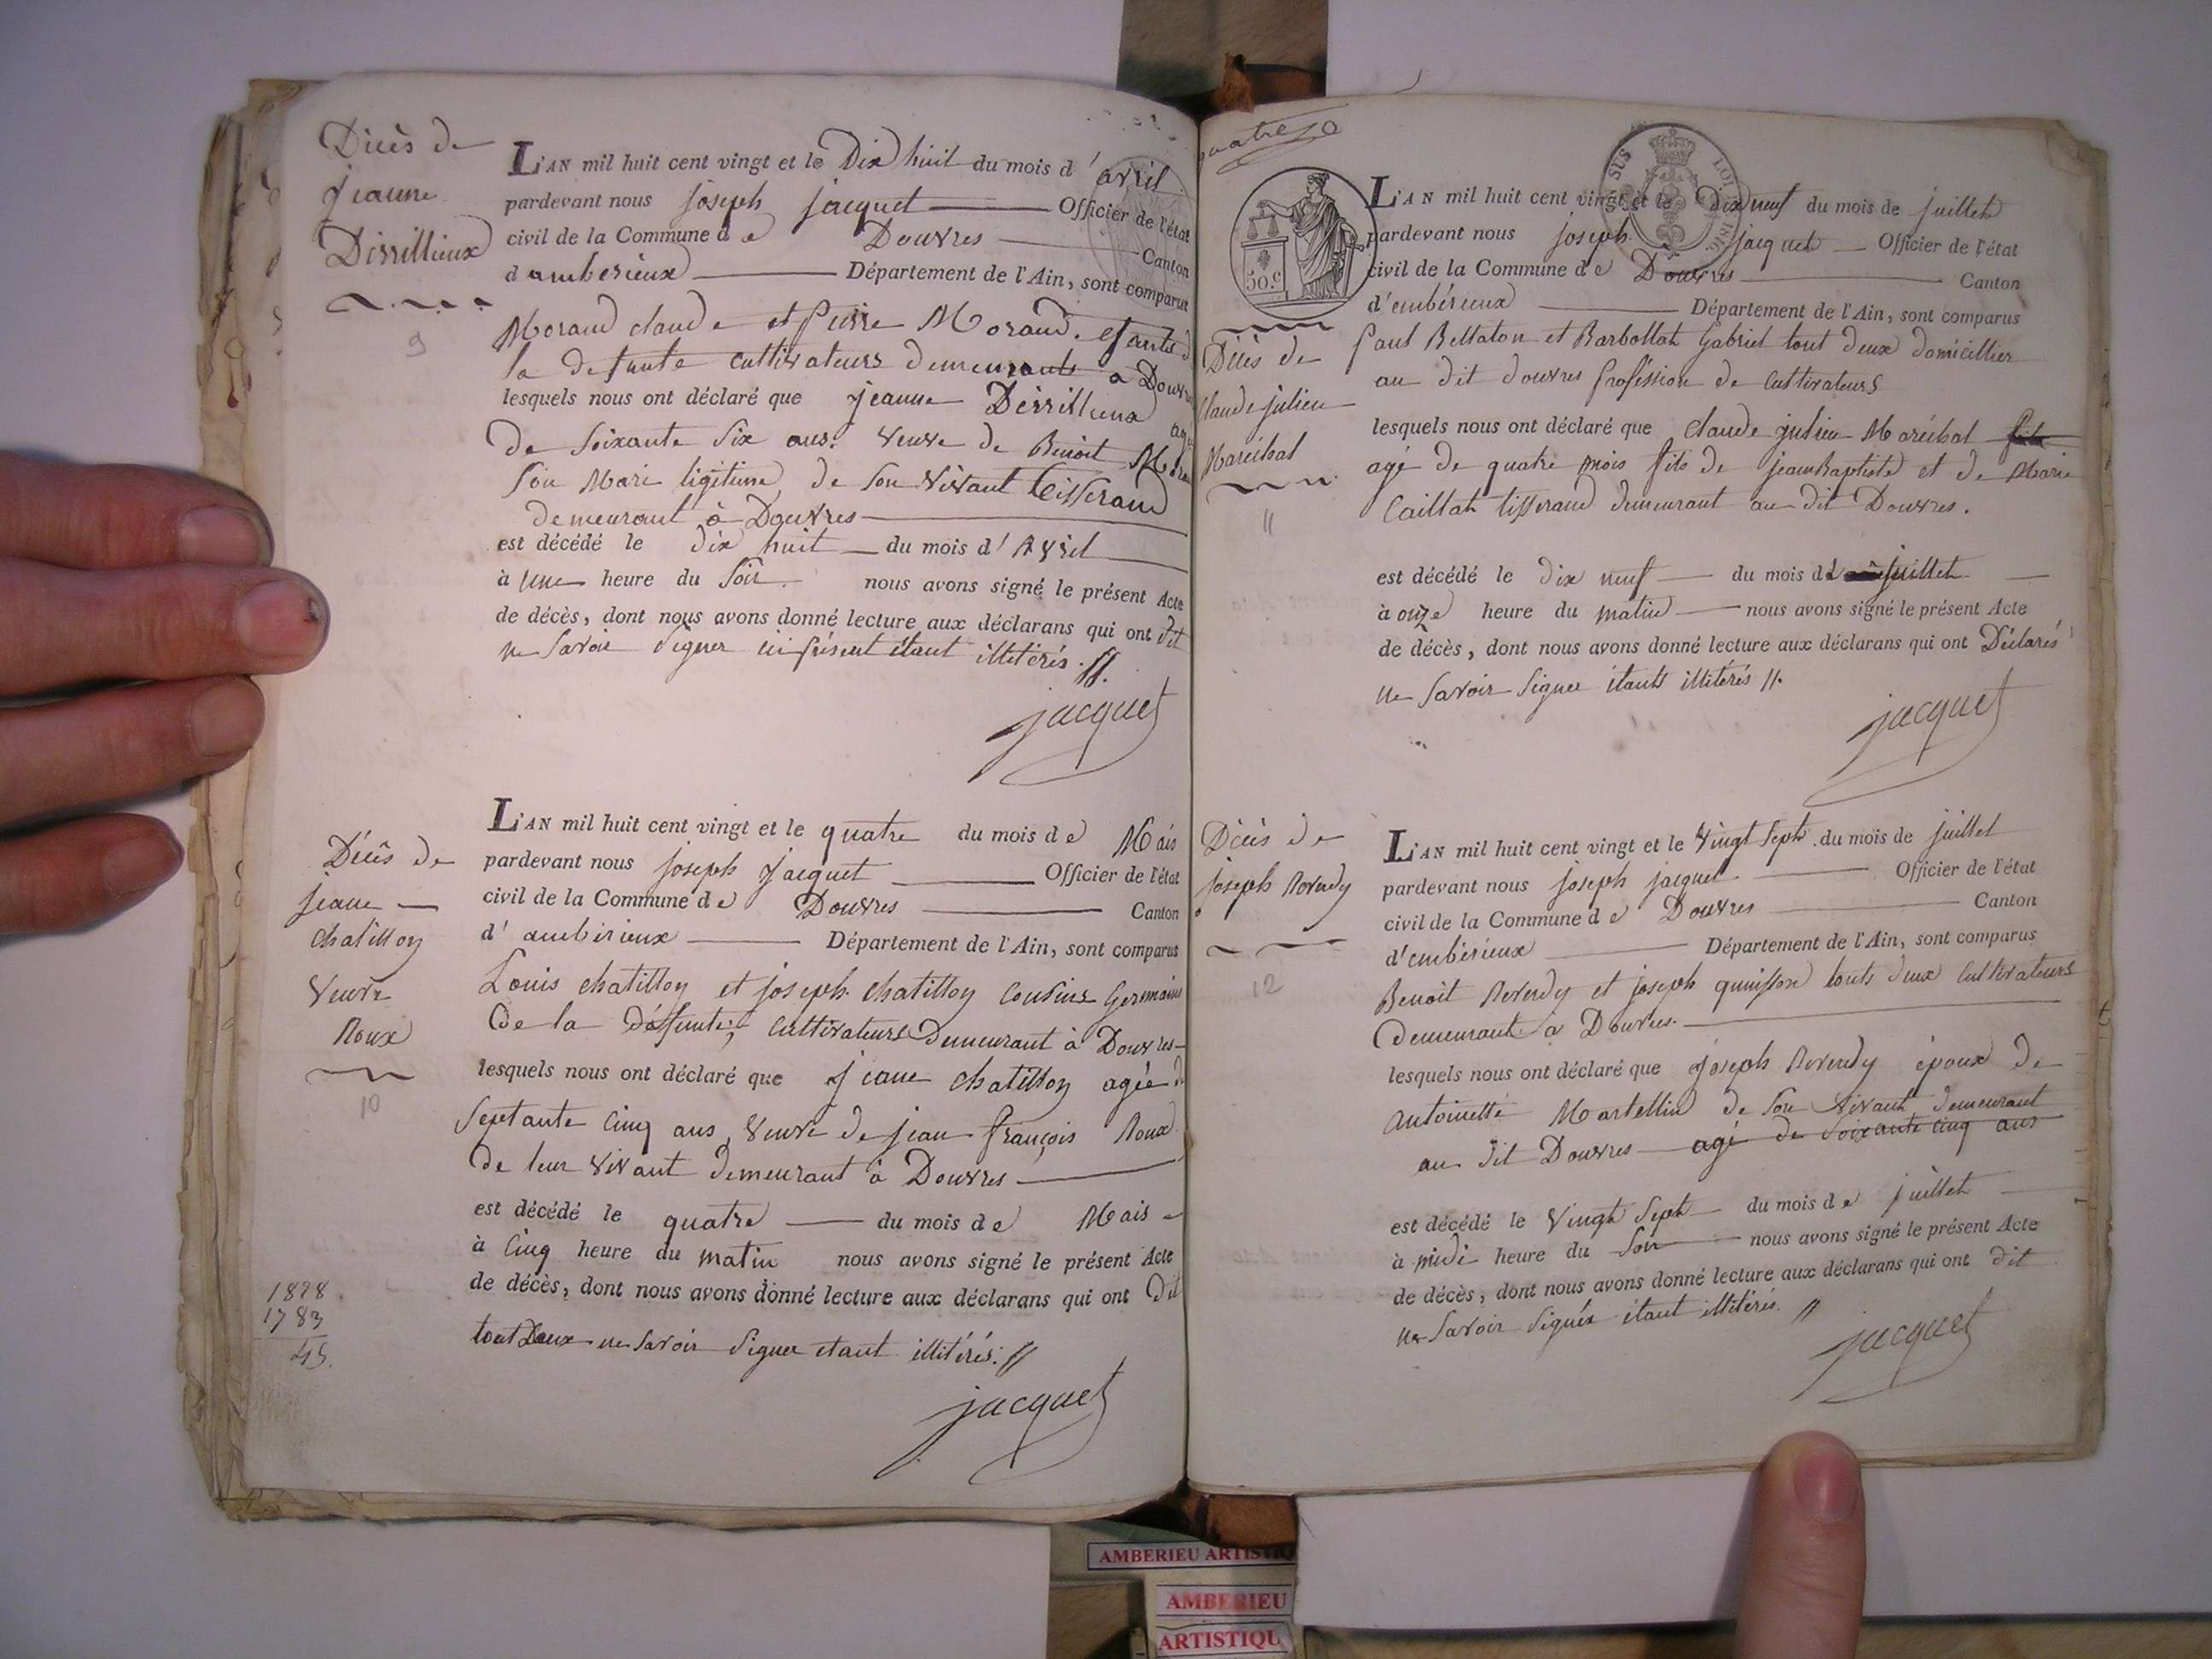 Décès de
jeanne
Dirrillieux
9
L'AN mil huit cent vingt et le Dix huit du mois d'avril
pardevant nous joseph jacquet Officier de l'état
civil de la Commune de Douvres Canton
d'amberieux Département de l'Ain, sont comparus
Morand claude et pierre Morand
la defunte cultivateurs demeurants a Douvres
lesquels nous ont déclaré que jeanne Dirrillieux
de soixante six ans. veuve de Benoit
son Mari ligitime, de son vivant tisserand
demeurant à Douvres
est décédé le dix huit du mois d'Avril
à une heure du soir nous avons signé le présent Acte
de décès, dont nous avons donné lecture aux déclarans qui ont dit
ne savoir signer étant illitérés. //.
jacquet
Décès de
jeane
chatillon
veuve
Roux
10
1828.
1783
45.
L'AN mil huit cent vingt et le quatre du mois de Mais
pardevant nous joseph jacquet Officier de l'état
civil de la Commune de Douvres Canton
d'ambérieux Département de l'Ain, sont comparus
Louis chatillon et joseph chatillon cousins Germains
de la défunte, cultivateurs demeurant à Douvres
lesquels nous ont déclaré que jeane chatillon agée d
septante cinq ans, veuve de jean françois Roux
de leur vivant demeurant à Douvres
est décédé le quatre du mois de Mais
à cinq heure du matin nous avons signé le présent Acte
de décès, dont nous avons donné lecture aux déclarans qui ont dit
tout Deux ne savoir signer etant illitérés. //
jacquet
50.C
LOI
Décès de
claude julien
Maréchal
11
L'AN mil huit cent vingt et le dix neuf du mois de juillet
pardevant nous joseph jacquet Officier de l'état
civil de la Commune de Douvres Canton
d'embérieux Département de l'Ain, sont comparus
paul Bellaton et Barbollat Gabriel tout deux domicillier
au dit douvres proféssion de cultivateurs
lesquels nous ont déclaré que claude julien Maréchal
agé de quatre mois fils de jean Baptiste et de Marie
Caillat tisserand demeurant au dit Douvres.
est décédé le dix neuf du mois de juillet
à onze heure du matin nous avons signé le présent Acte
de décès, dont nous avons donné lecture aux déclarans qui ont Déclarés
ne savoir signer étants illitérés //.
jacquet
Décès de
joseph Reverdy
12
L'AN mil huit cent vingt et le vingt sept du mois de juillet
pardevant nous joseph jacquet Officier de l'état
civil de la Commune de Douvres Canton
d'embérieux Département de l'Ain, sont comparus
Benoit Reverdy et joseph quinsson touts deux cultivateurs
demeurants a Douvres.
lesquels nous ont déclaré que joseph Reverdy époux de
antoinette Martellin de son vivant demeurant
au dit Douvres agé de soixante cinq ans
est décédé le vingt sept du mois de juillet
à midi heure du soir nous avons signé le présent Acte
de décès, dont nous avons donné lecture aux déclarans qui ont dit
ne savoir signés étant illitérés. //
jacquet
AMBERIEU ARTISTIQ
AMBERIEU
ARTISTIQU